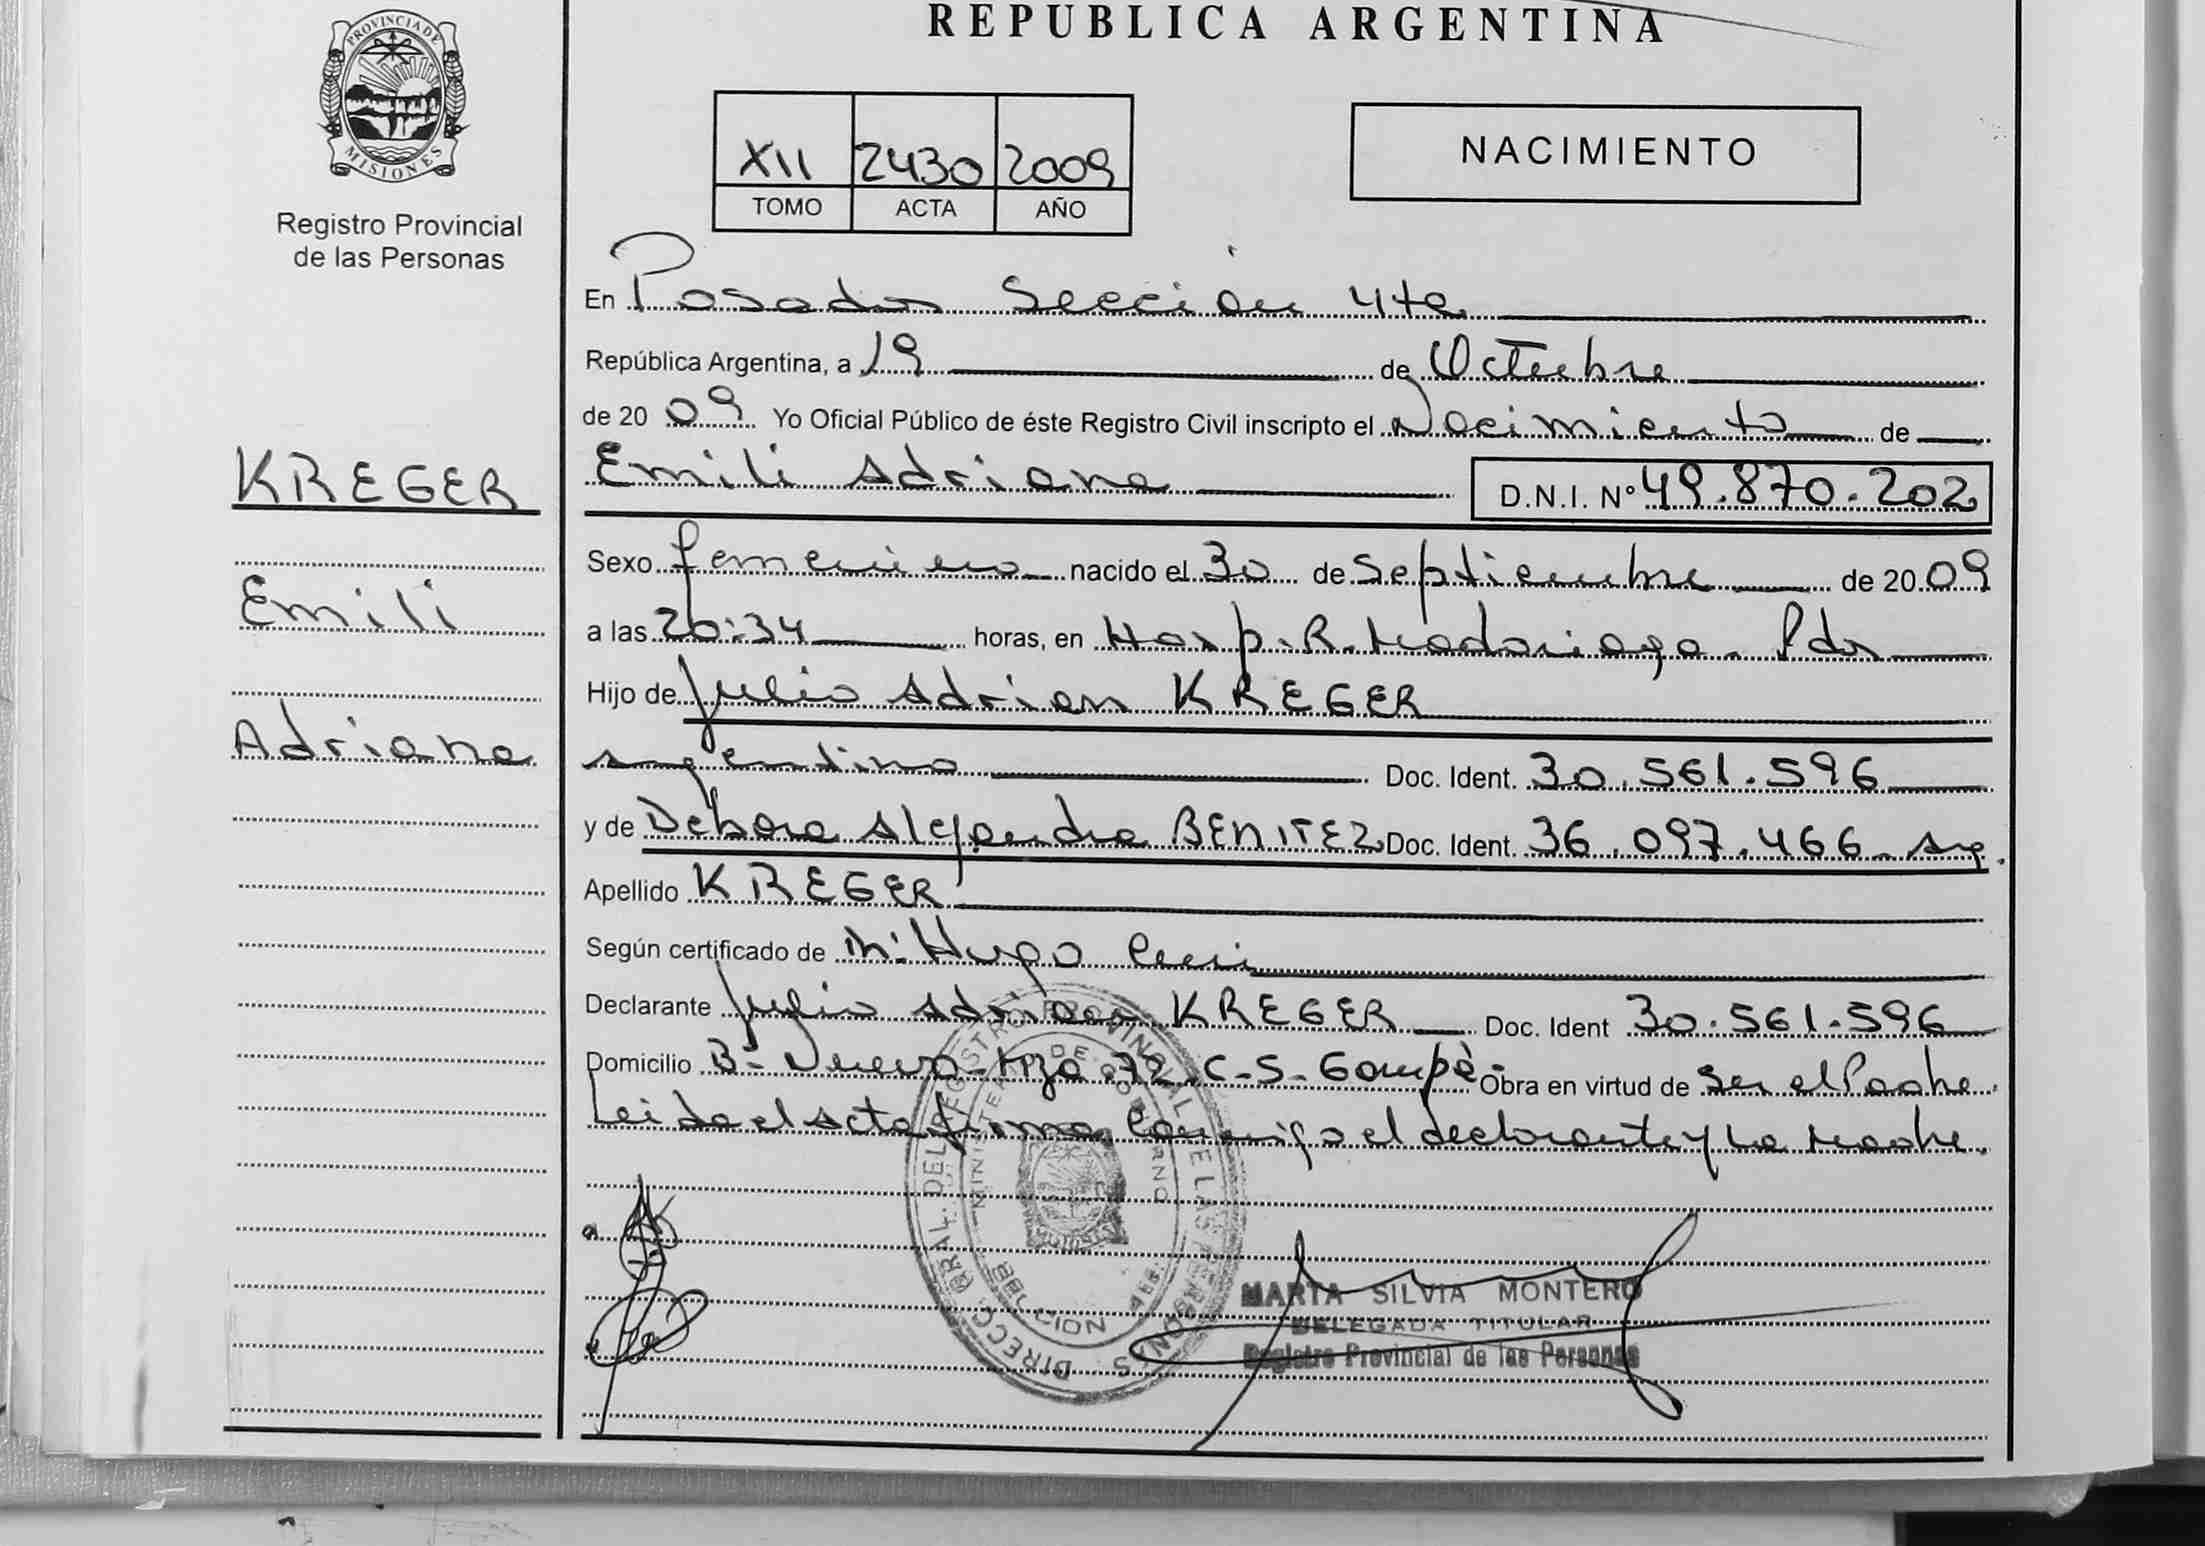 REPUBLICA ARGENTINA
PROVINCIA DE
MISIONES
Registro Provincial
de las Personas
XII 2430 2009
TOMO ACTA AÑO
NACIMIENTO
En Posadas Sección 4ta
República Argentina, a 19 de Octubre
de 20 09 Yo Oficial Público de éste Registro Civil inscripto el Nacimiento de
Emili Adriana D.N.I. Nº 49.870.202
KREGER
Emili
Adriana
Sexo femenino nacido el 30 de Septiembre de 20 09
a las 20:34 horas, en Hosp. R. Madariaga. Pdas
Hijo de Julio Adrian KREGER
argentino Doc. Ident. 30.561.596
y de Debora Alejandra BENITEZ Doc. Ident. 36.097.466 - Arg.
Apellido KREGER
Según certificado de Hugo
Declarante Julio Adrian KREGER Doc. Ident 30.561.596
Domicilio Bº Nuevo - Mza 72. C-S- Gompè Obra en virtud de Ser el Padre.
Leida el Acta firma conmigo el declarante y La Madre.
DIRECC. GRAL. DEL REGISTRO PROVINCIAL DE LAS PERSONAS
MINISTERIO DE GOBIERNO
MISIONES
MARTA SILVIA MONTERO
DELEGADA TITULAR
Registro Provincial de las Personas